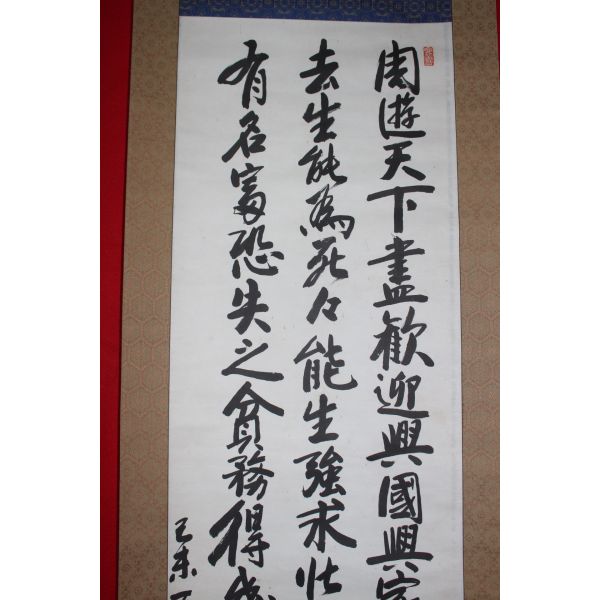 周遊天下盡歡迎興國興家
去生能為死々能生強求壮
有名富恐失之貪務得成
己未